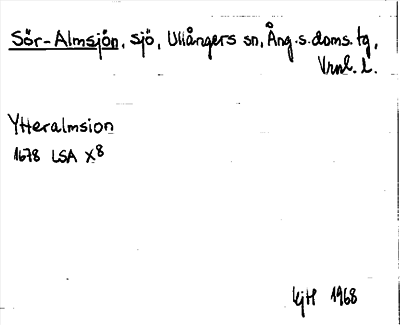 Sör-Almsjön, sjö, Ullångers sn, Ång.s.doms.tg,
Vrnl. l.
Ytteralmsion
1678 LSA X8
KjH 1968